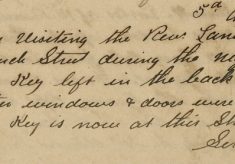 5th
Visiting the Rev. Lan
Street during the
Key left in the back
windows & doors were
Key is now at this St